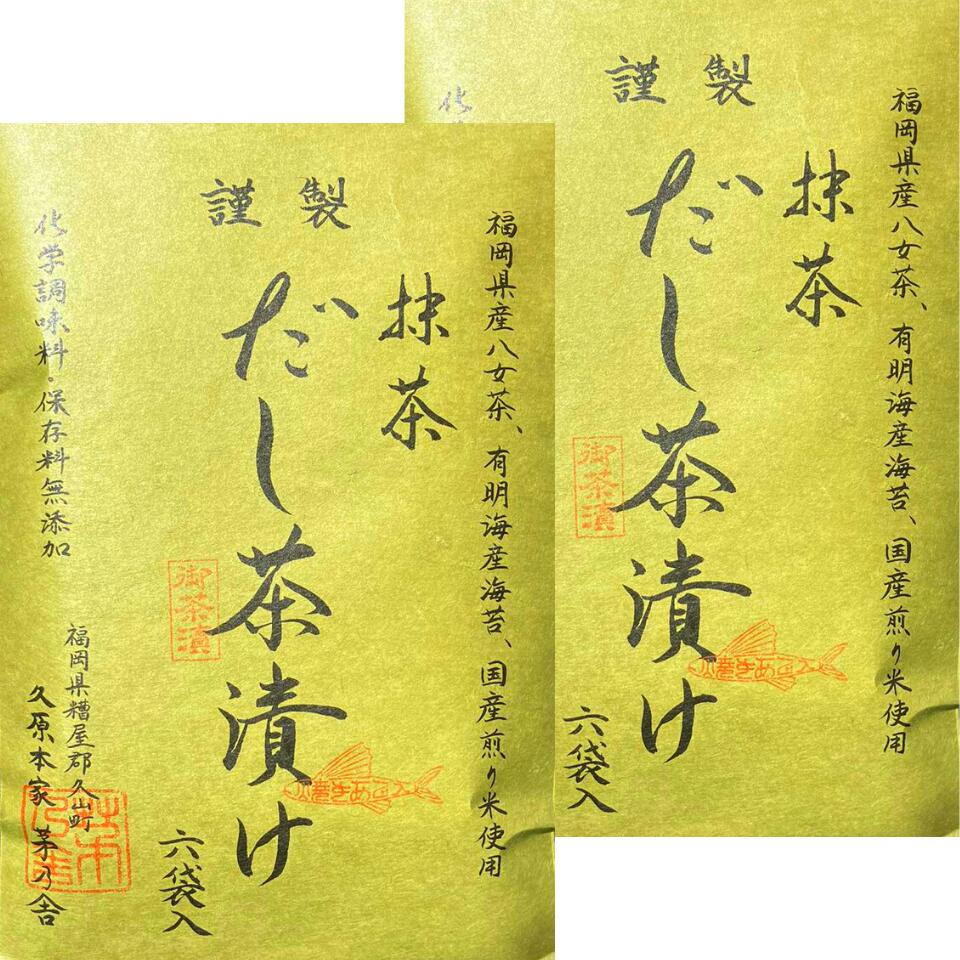 謹製
福岡県産八女茶、有明海産海苔、国産煎り米使用
抹茶
だし茶漬け
御茶漬
焼きあご入
六袋入
化学調味料・保存料無添加
福岡県糟屋郡久山町
久原本家 茅乃舎
謹製
福岡県産八女茶、有明海産海苔、国産煎り米使用
抹茶
だし茶漬け
御茶漬
焼きあご入
六袋入
化